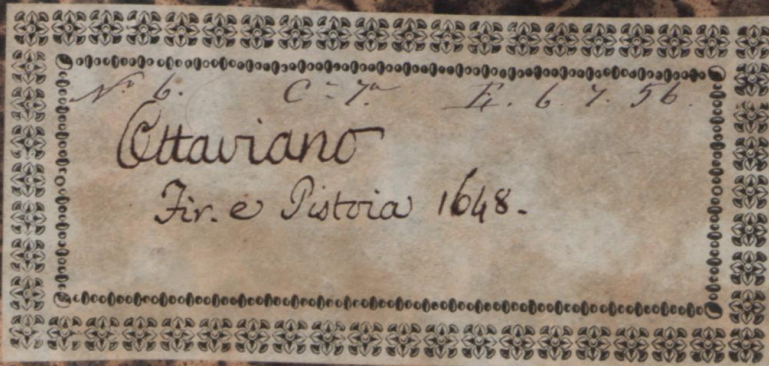 N.º 6. C.ª 7.ª E. 6. 7. 56.
Ottaviano
Fir. e Pistoia 1648.